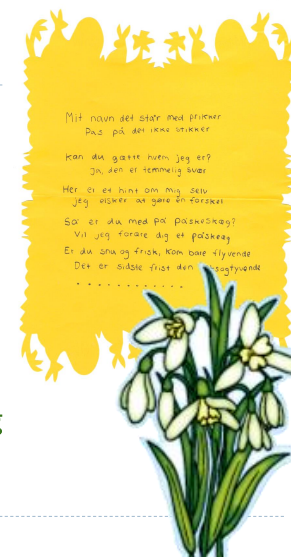 Mit navn det står med prikker
Pas på det ikke stikker
Kan du gætte hvem jeg er?
Ja, den er temmelig svær
Her er et hint om mig selv
jeg elsker at gøre en forskel
Så er du med på påskeskæg?
Vil jeg forære dig et påskeæg
Er du snu og frisk, kom bare flyvende
Det er sidste frist den
. . . . . . . . . . . .